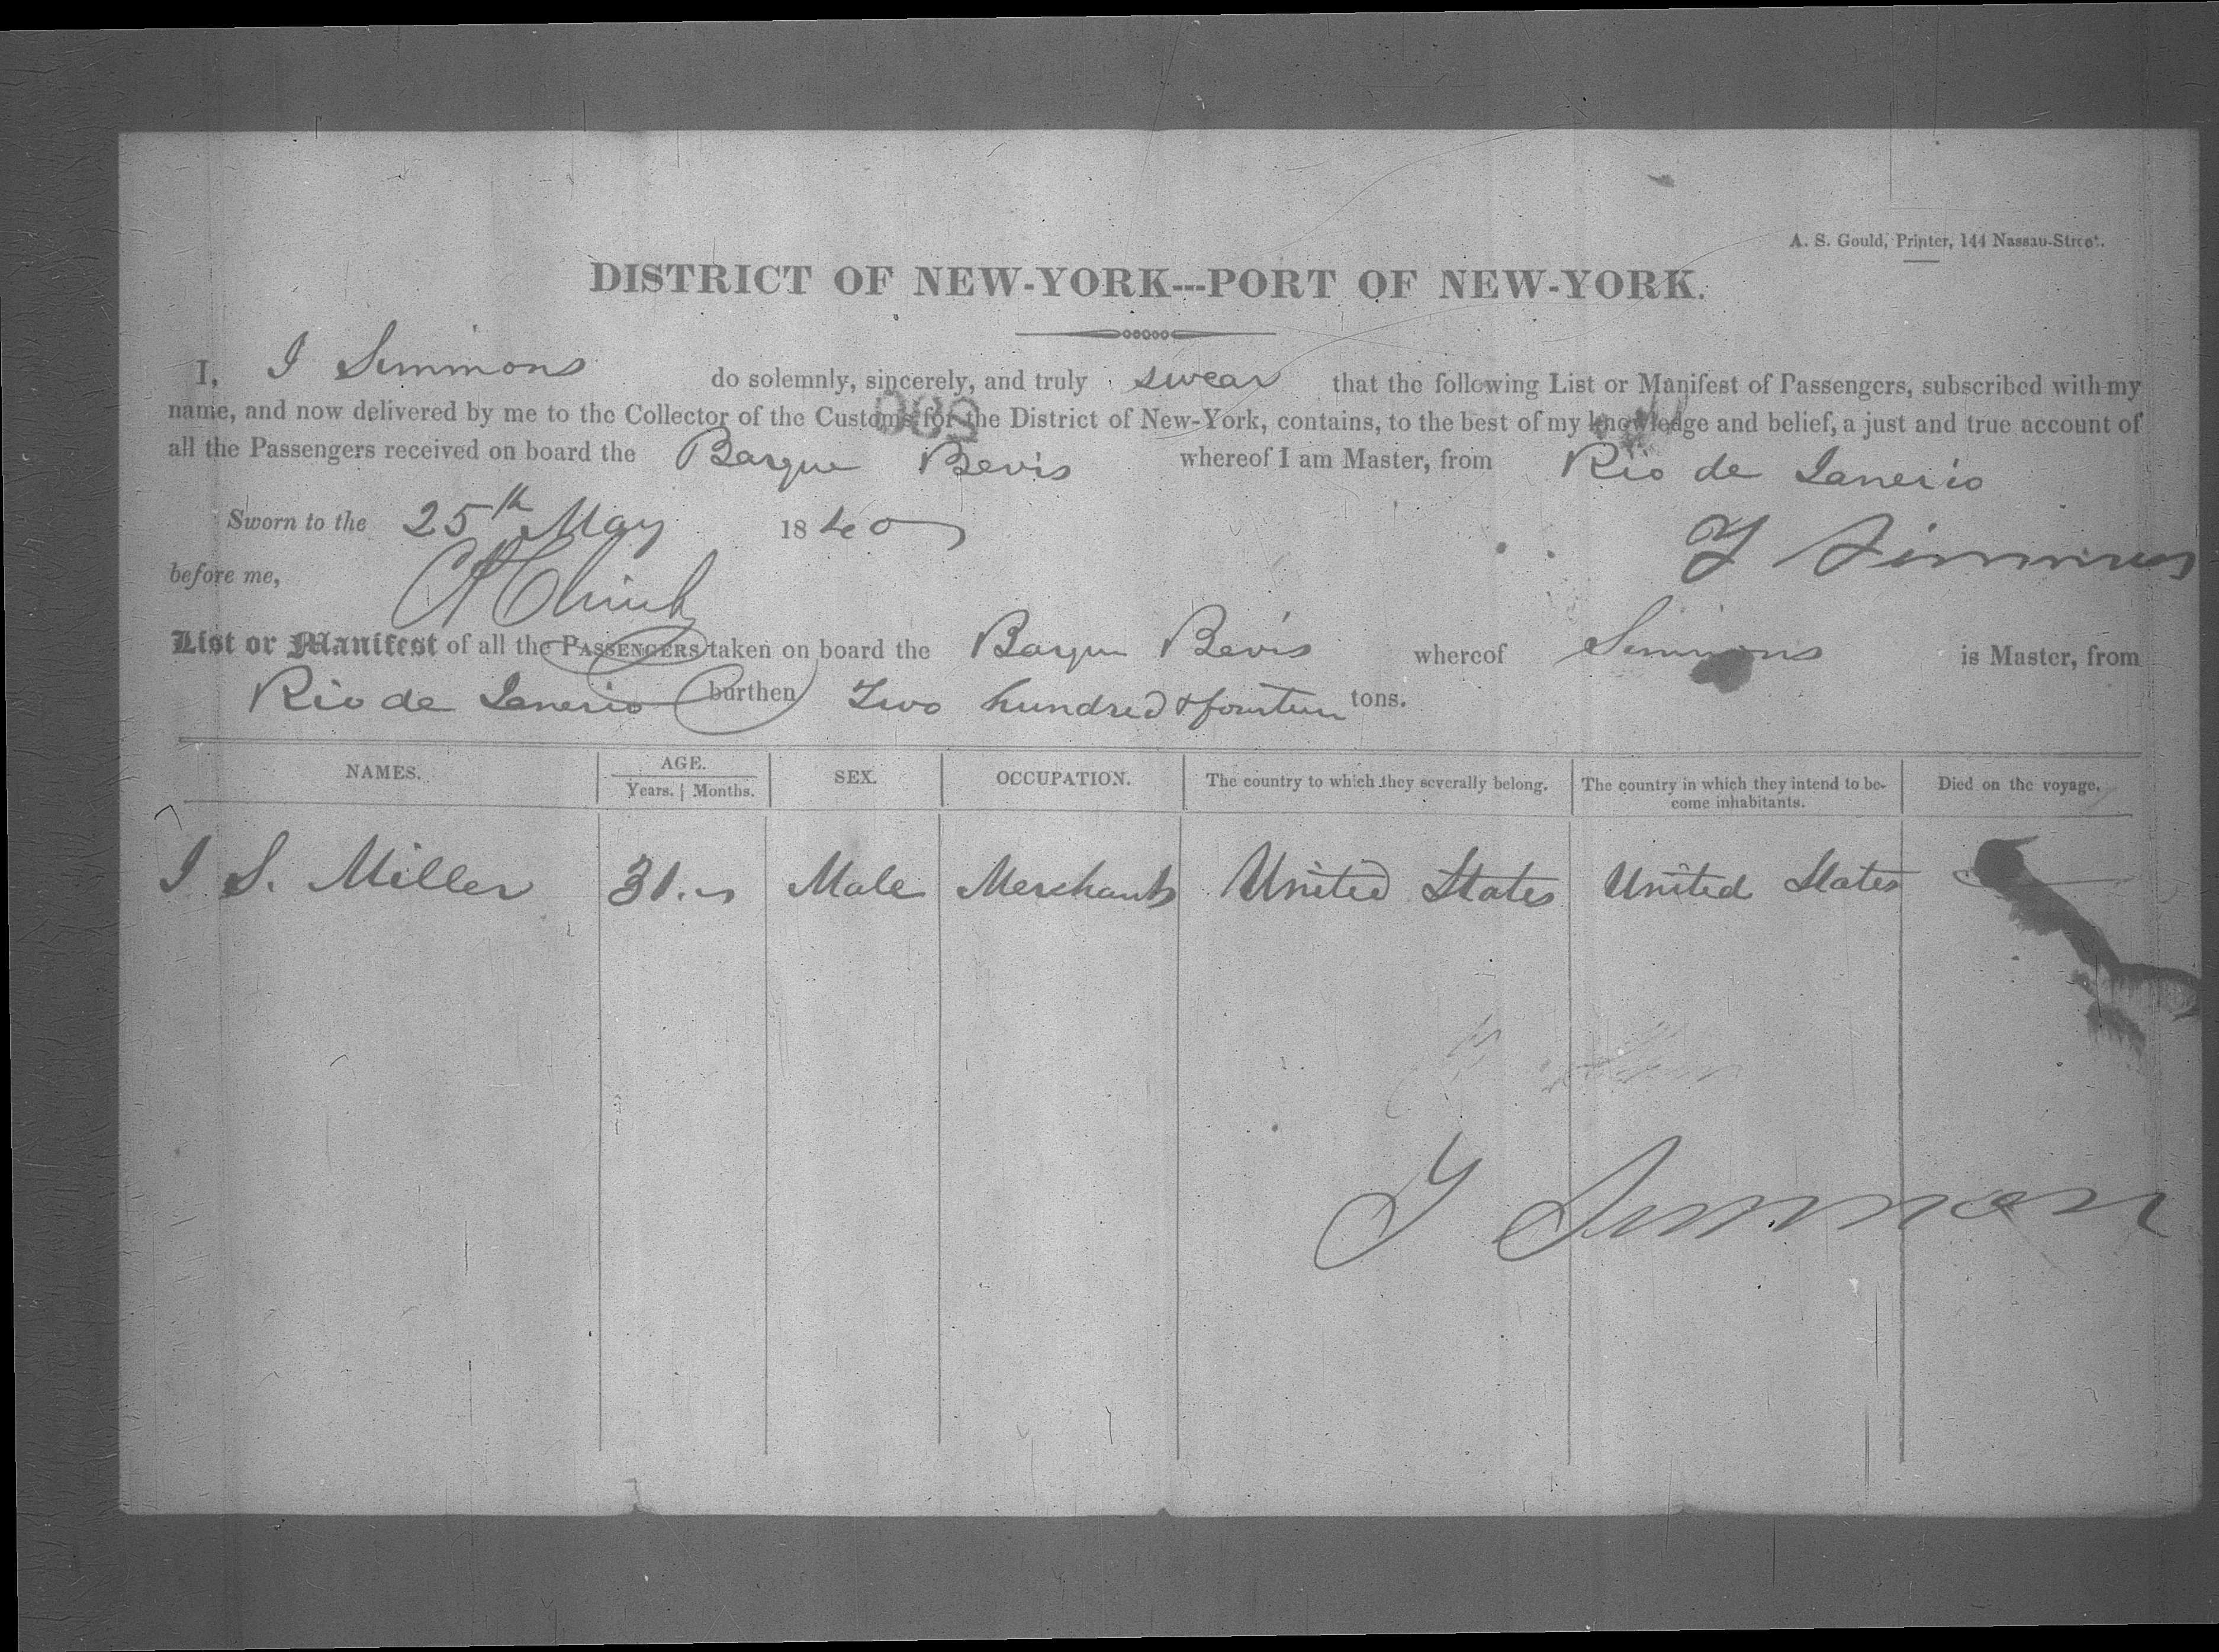 A. S. Gould, Printer, 144 Nassau-Street.
DISTRICT OF NEW-YORK---PORT OF NEW-YORK.
I, I Simmons do solemnly, sincerely, and truly swear that the following List or Manifest of Passengers, subscribed with my
name, and now delivered by me to the Collector of the Customs for the District of New-York, contains, to the best of my knowledge and belief, a just and true account of
all the Passengers received on board the Barque Bevis whereof I am Master, from Rio de Janerio
Sworn to the 25th May 1840
I Simmons
before me,
List or Manifest of all the PASSENGERS taken on board the Barque Bevis whereof Simmons is Master, from
Rio de Janerio burthen Two hundred & fourteen tons.
NAMES. AGE. SEX. OCCUPATION. The country to which they severally belong. The country in which they intend to be- Died on the voyage.
Years. | Months. come inhabitants.
I S. Miller 31 Male Merchant United States United States
I Simmons